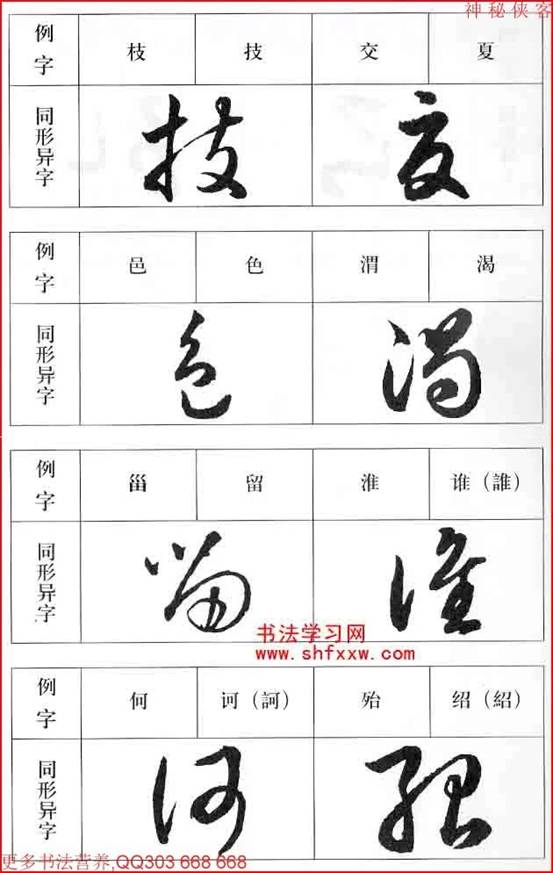 神秘侠客
例字 枝 技 交 夏
同形异字
例字 邑 色 渭 渴
同形异字
例字 甾 留 淮 谁（誰）
同形异字
书法学习网
www.shfxxw.com
例字 何 诃（訶） 殆 绍（紹）
同形异字
更多书法营养,QQ303 668 668